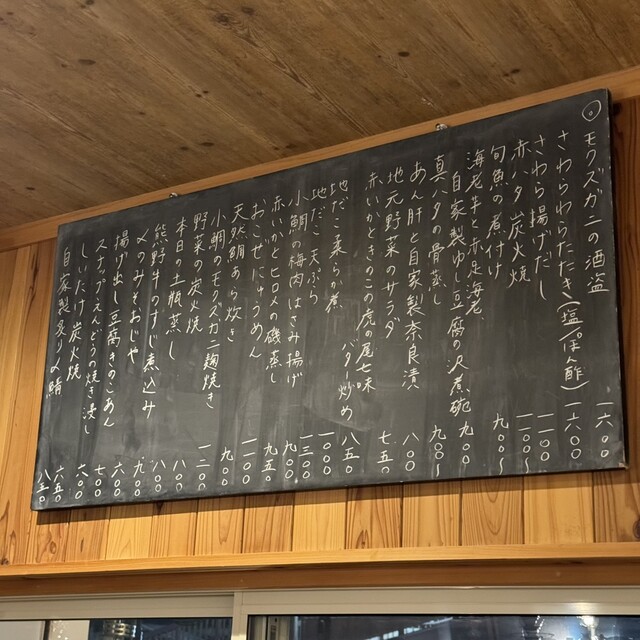 ◎ モクズガニの酒盗 六〇〇
さわらわらたたき(塩/ぽん酢) 一六〇〇
さわら 揚げだし 一一〇〇
赤ハタ 炭火焼 一一〇〇〜
旬魚の煮付け 九〇〇〜
海老芋と赤足海老、
自家製ゆし豆腐の沢煮碗 九〇〇
真ハタの骨蒸し 九〇〇〜
あん肝と自家製奈良漬 八〇〇
地元野菜のサラダ 七五〇
赤いかときのこの虎の尾七味
バター炒め 八五〇
地だこ柔らか煮 一〇〇〇
地だこ 天ぷら 一三〇〇
小鯛の梅肉はさみ揚げ 九〇〇
赤いかとヒロメの磯蒸し 九五〇
おこぜにゅうめん 一一〇〇
天然鯛あら炊き 九〇〇
小鯛のモクズガニ麹焼き 一二〇〇
野菜の炭火焼 八〇〇
本日の土瓶蒸し 一〇〇〇
熊野牛のすじ煮込み 九〇〇
〆のみそおじや 六〇〇
揚げ出し豆腐きのこあん 七〇〇
スナップえんどうの焼き浸し 六〇〇
しいたけ 炭火焼 六五〇
自家製炙り〆鯖 八五〇